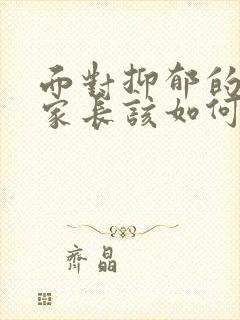 而對抑郁的
家長該如何
齊晶